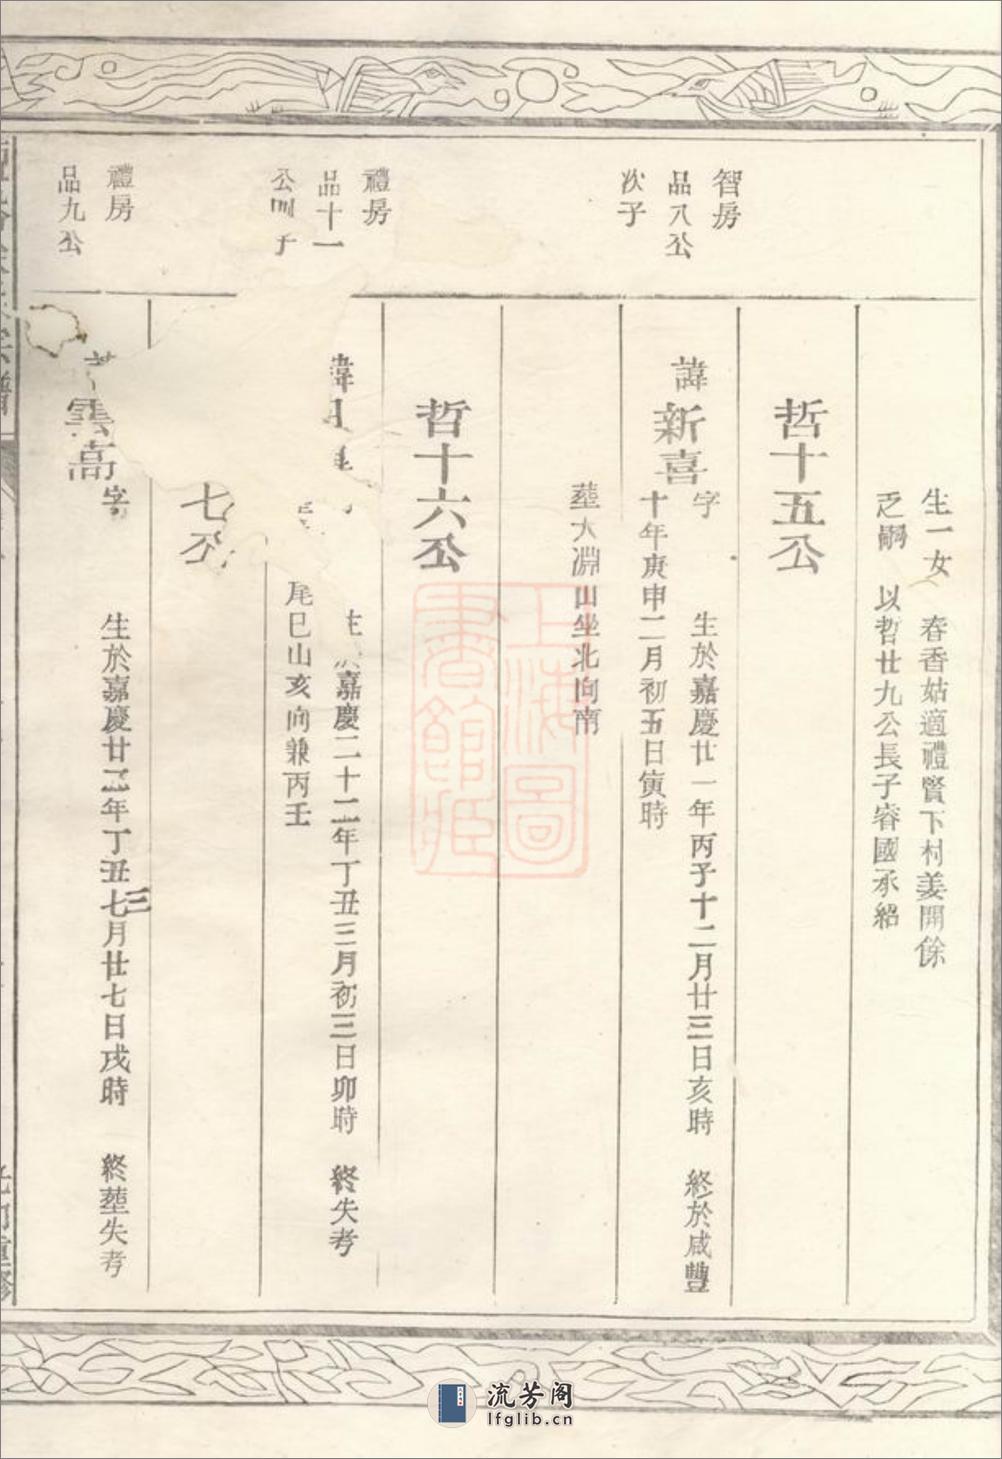 生一女　春香姑適禮賢下村姜開餘
乏嗣　以哲廿九公長子睿國承紹
哲十五公
智房
品八公
次子
諱新喜
字　生於嘉慶廿一年丙子十二月廿三日亥時　終於咸豐
十年庚申二月初五日寅時
葬大淵山坐北向南
哲十六公
禮房
品十一
公　子
諱
生　嘉慶二十二年丁丑三月初三日卯時　終失考
尾巳山亥向兼丙壬
七公
禮房
品九公
雲高
字　生於嘉慶廿二年丁丑七月廿七日戌時　終葬失考
三
上海圖
書館藏
流芳阁
lfglib.cn